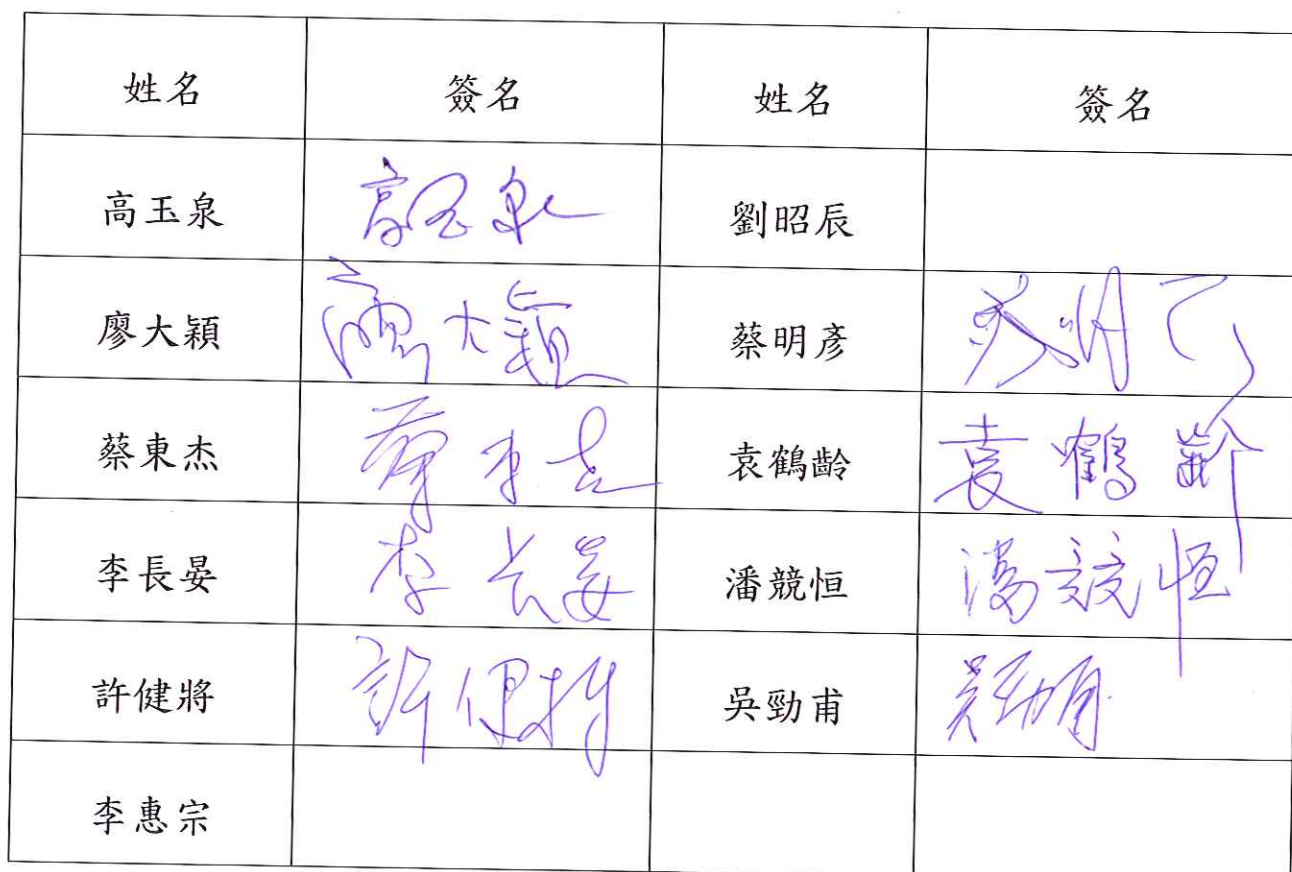 姓名 簽名 姓名 簽名
高玉泉 高玉泉 劉昭辰
廖大穎 廖大穎 蔡明彥 蔡明彥
蔡東杰 蔡東杰 袁鶴齡 袁鶴齡
李長晏 李長晏 潘競恒 潘競恒
許健將 許健將 吳勁甫 吳勁甫
李惠宗